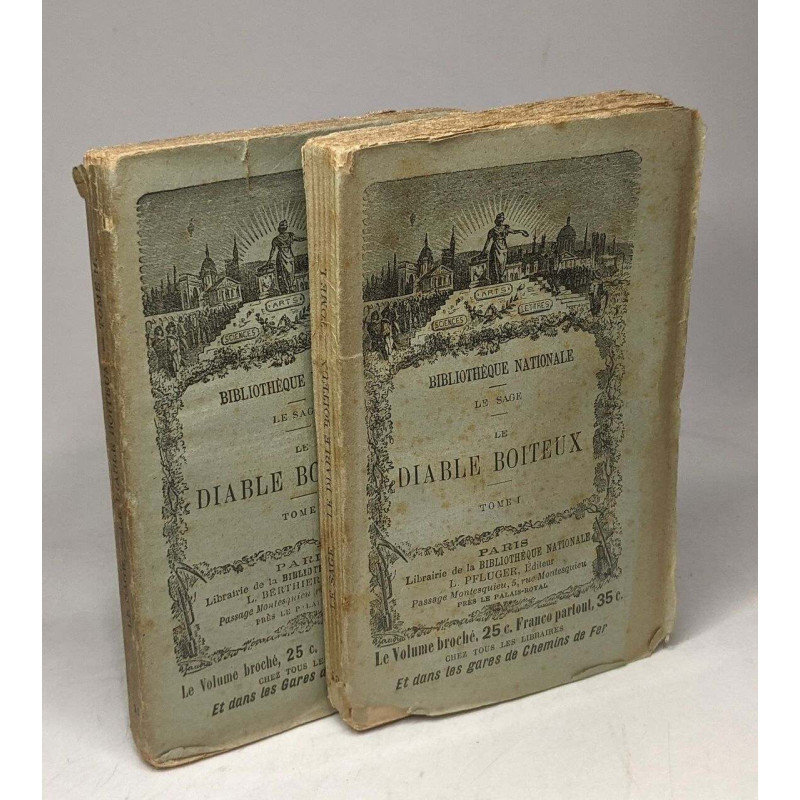 ARTS
SCIENCES
BIBLIOTHÈQUE
LE SAG
LE
DIABLE BO
TOME
PARIS
Librairie de la BIBLIOTH
L. BERTHIER
Passage Montesquieu
PRÈS LE PALA
Le Volume broché, 25 c.
CHEZ TOUS LES
Et dans les Gares d
LE SAGE LE DIABLE BOITEUX TOME I.
ARTS
SCIENCES
LETTRES
BIBLIOTHÈQUE NATIONALE
LE SAGE
LE
DIABLE BOITEUX
TOME I
PARIS
Librairie de la BIBLIOTHÈQUE NATIONALE
L. PFLUGER, Éditeur
Passage Montesquieu, 5, rue Montesquieu
PRÈS LE PALAIS-ROYAL
Le Volume broché, 25 c. Franco partout, 35 c.
CHEZ TOUS LES LIBRAIRES
Et dans les gares de Chemins de Fer